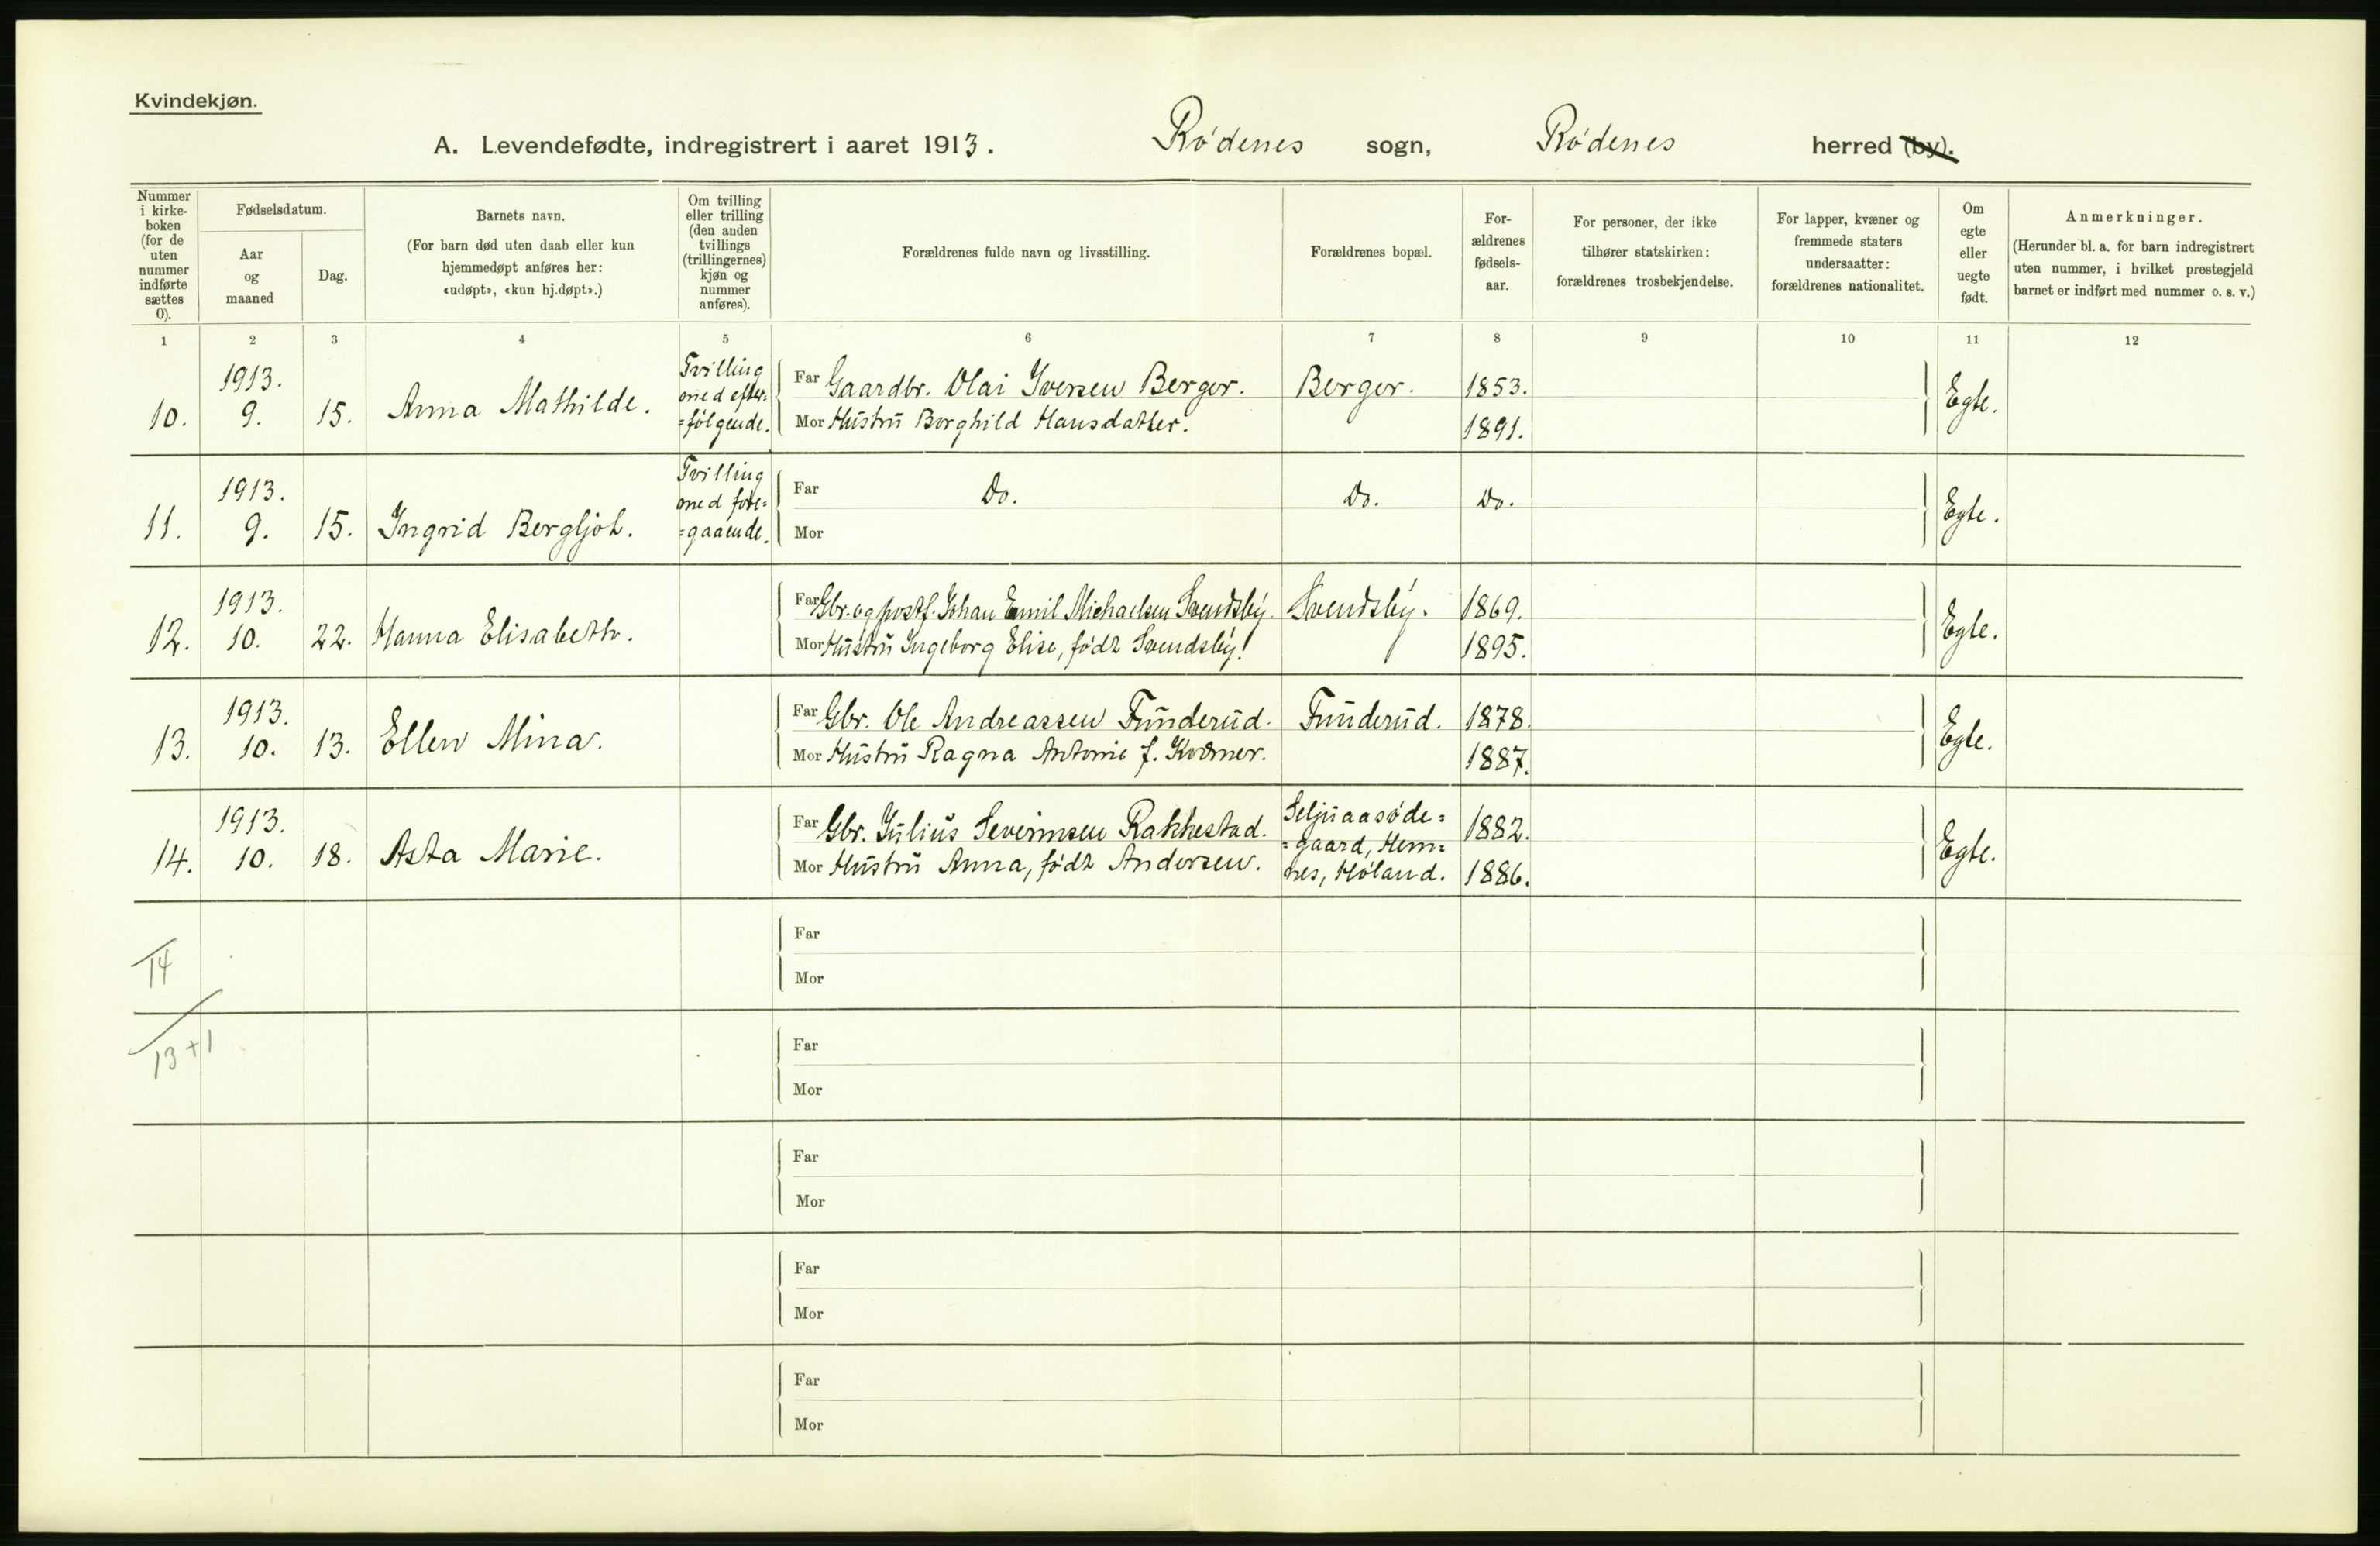 Kvindekjøn.
A. Levendefødte, indregistrert i aaret 1913. Rødenes sogn, Rødenes herred (by).
Nummer i kirke-boken (for de uten nummer indførte sættes 0).
Fødselsdatum.
Aar og maaned
Dag.
Barnets navn.
(For barn død uten daab eller kun hjemmedøpt anføres her: «udøpt», «kun hj.døpt».)
Om tvilling eller trilling (den anden tvillings (trillingernes) kjøn og nummer anføres).
Forældrenes fulde navn og livsstilling.
Forældrenes bopæl.
For-ældrenes fødsels-aar.
For personer, der ikke tilhører statskirken: forældrenes trosbekjendelse.
For lapper, kvæner og fremmede staters undersaatter: forældrenes nationalitet.
Om egte eller uegte født.
Anmerkninger.
(Herunder bl. a. for barn indregistrert uten nummer, i hvilket prestegjeld barnet er indført med nummer o. s. v.)
1 2 3 4 5 6 7 8 9 10 11 12
10. 1913. 9. 15. Anna Mathilde. Tvilling med efter= =følgende. Far Gaardbr. Olai Iversen Berger. Berger. 1853. Egte.
Mor Hustru Borghild Hansdatter. 1891.
11. 1913. 9. 15. Ingrid Bergljot. Tvilling med fore= =gaaende. Far Do. Do. Do. Egte.
Mor
12. 1913. 10. 22. Hanna Elisabeth. Far Gbr. og postf. Johan Emil Michaelsen Svendsby. Svendsby. 1869. Egte.
Mor Hustru Ingeborg Elise, født Svendsby! 1895.
13. 1913. 10. 13. Ellen Mina. Far Gbr. Ole Andreassen Funderud. Funderud. 1878. Egte.
Mor Hustru Ragna Antonie f. 1887.
14. 1913. 10. 18. Asta Marie. Far Gbr. Julius Severinsen Rakkestad. Seljuaasøde= =gaard, Hem= nes, Høland. 1882. Egte.
Mor Hustru Anna, født Andersen. 1886.
14
Far
Mor
13+1
Far
Mor
Far
Mor
Far
Mor
Far
Mor